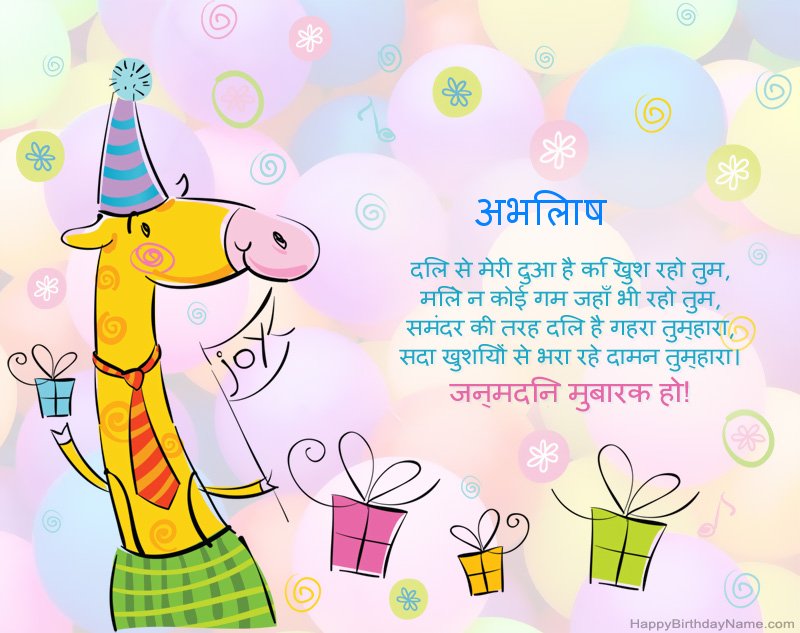 अभिलाष
दिल से मेरी दुआ है कि खुश रहो तुम,
मिले न कोई गम जहाँ भी रहो तुम,
समंदर की तरह दिल है गहरा तुम्हारा,
सदा खुशियों से भरा रहे दामन तुम्हारा।
जन्मदिन मुबारक हो!
joy
HappyBirthdayName.com